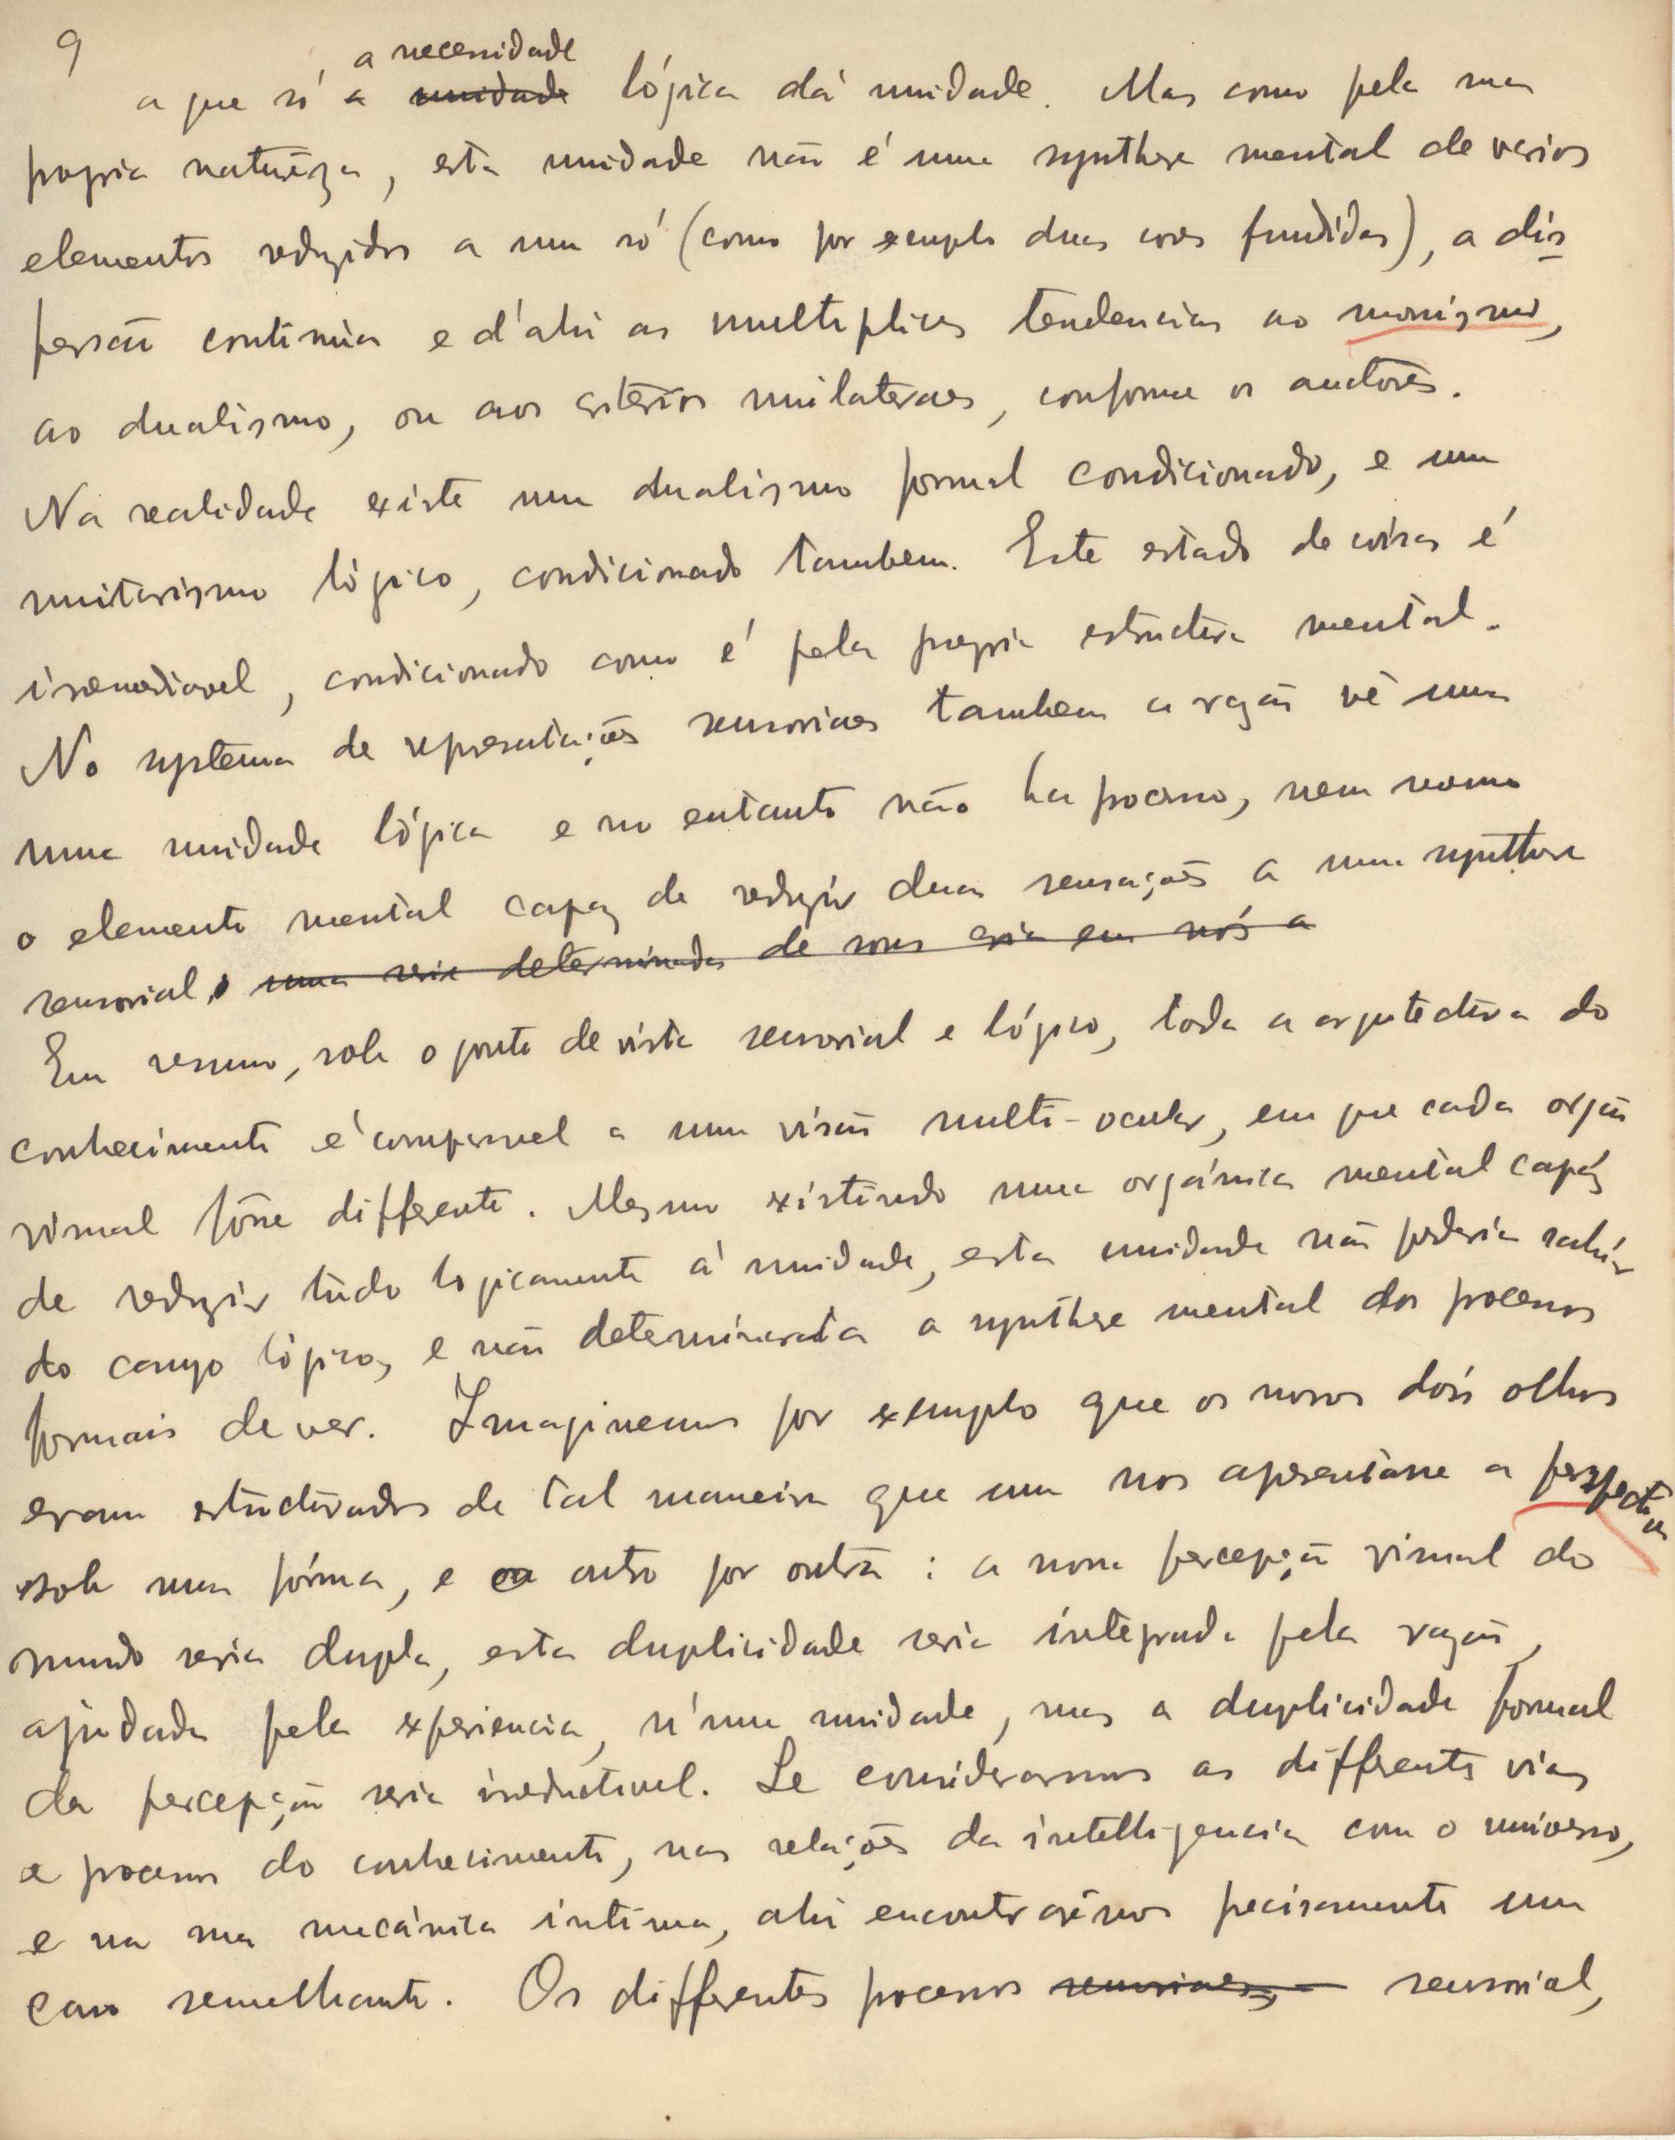 9
a necessidade
a que só a unidade lógica dá unidade. Mas como pela sua
propria natureza, esta unidade não é uma synthese mental de varios
elementos reduzidos a um só (como por exemplo duas cores fundidas), a dis-
persão continúa e d'ahi as multiplices tendencias ao monismo,
ao dualismo, ou aos criterios unilateraes, conforme os auctores.
Na realidade existe um dualismo formal condicionado, e um
unitarismo lógico, condicionado tambem. Este estado de coisas é
irremediavel, condicionado como é pela propria estructura mental.
No systema de representações sensoriaes tambem a razão vê uma
uma unidade lógica e no entanto não ha processo, nem mesmo
o elemento mental capaz de reduzir duas sensações a uma synthese
sensorial. uma serie determinada de sons cria em nós a
Em resumo, sob o ponto de vista sensorial e lógico, toda a arquitectura do
conhecimento é comparavel a uma visão multi-ocular, em que cada orgão
visual fôsse differente. Mesmo existindo uma orgánica mental capaz
de reduzir tudo logicamente á unidade, esta unidade não poderia sahir
do campo lógico, e não determinaria a synthese mental dos processos
formais de ver. Imaginemos por exemplo que os nossos dois olhos
eram estructurados de tal maneira que um nos apresentasse a perspectiva
sob uma fórma, e o outro por outra: a nossa percepção visual do
mundo seria dupla, esta duplicidade seria integrada pela razão,
ajudada pela experiencia, n'uma unidade, mas a duplicidade formal
da percepção seria irreductivel. Se considerarmos as differentes vias
e processos do conhecimento, nas relações da intelligencia com o universo,
e na sua mecánica intima, ahi encontrarêmos precisamente um
caso semelhante. Os differentes processos sensoriaes, sensorial,